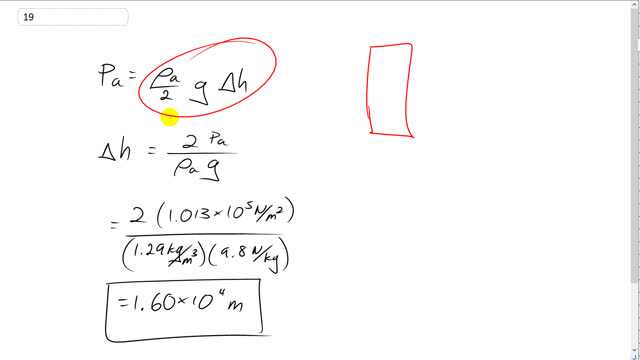 19
Pa = ρa/2 g Δh
Δh = 2 Pa / ρa g
= 2 (1.013 × 10⁵ N/m²) / (1.29 kg/m³)(9.8 N/kg)
= 1.60 × 10⁴ m